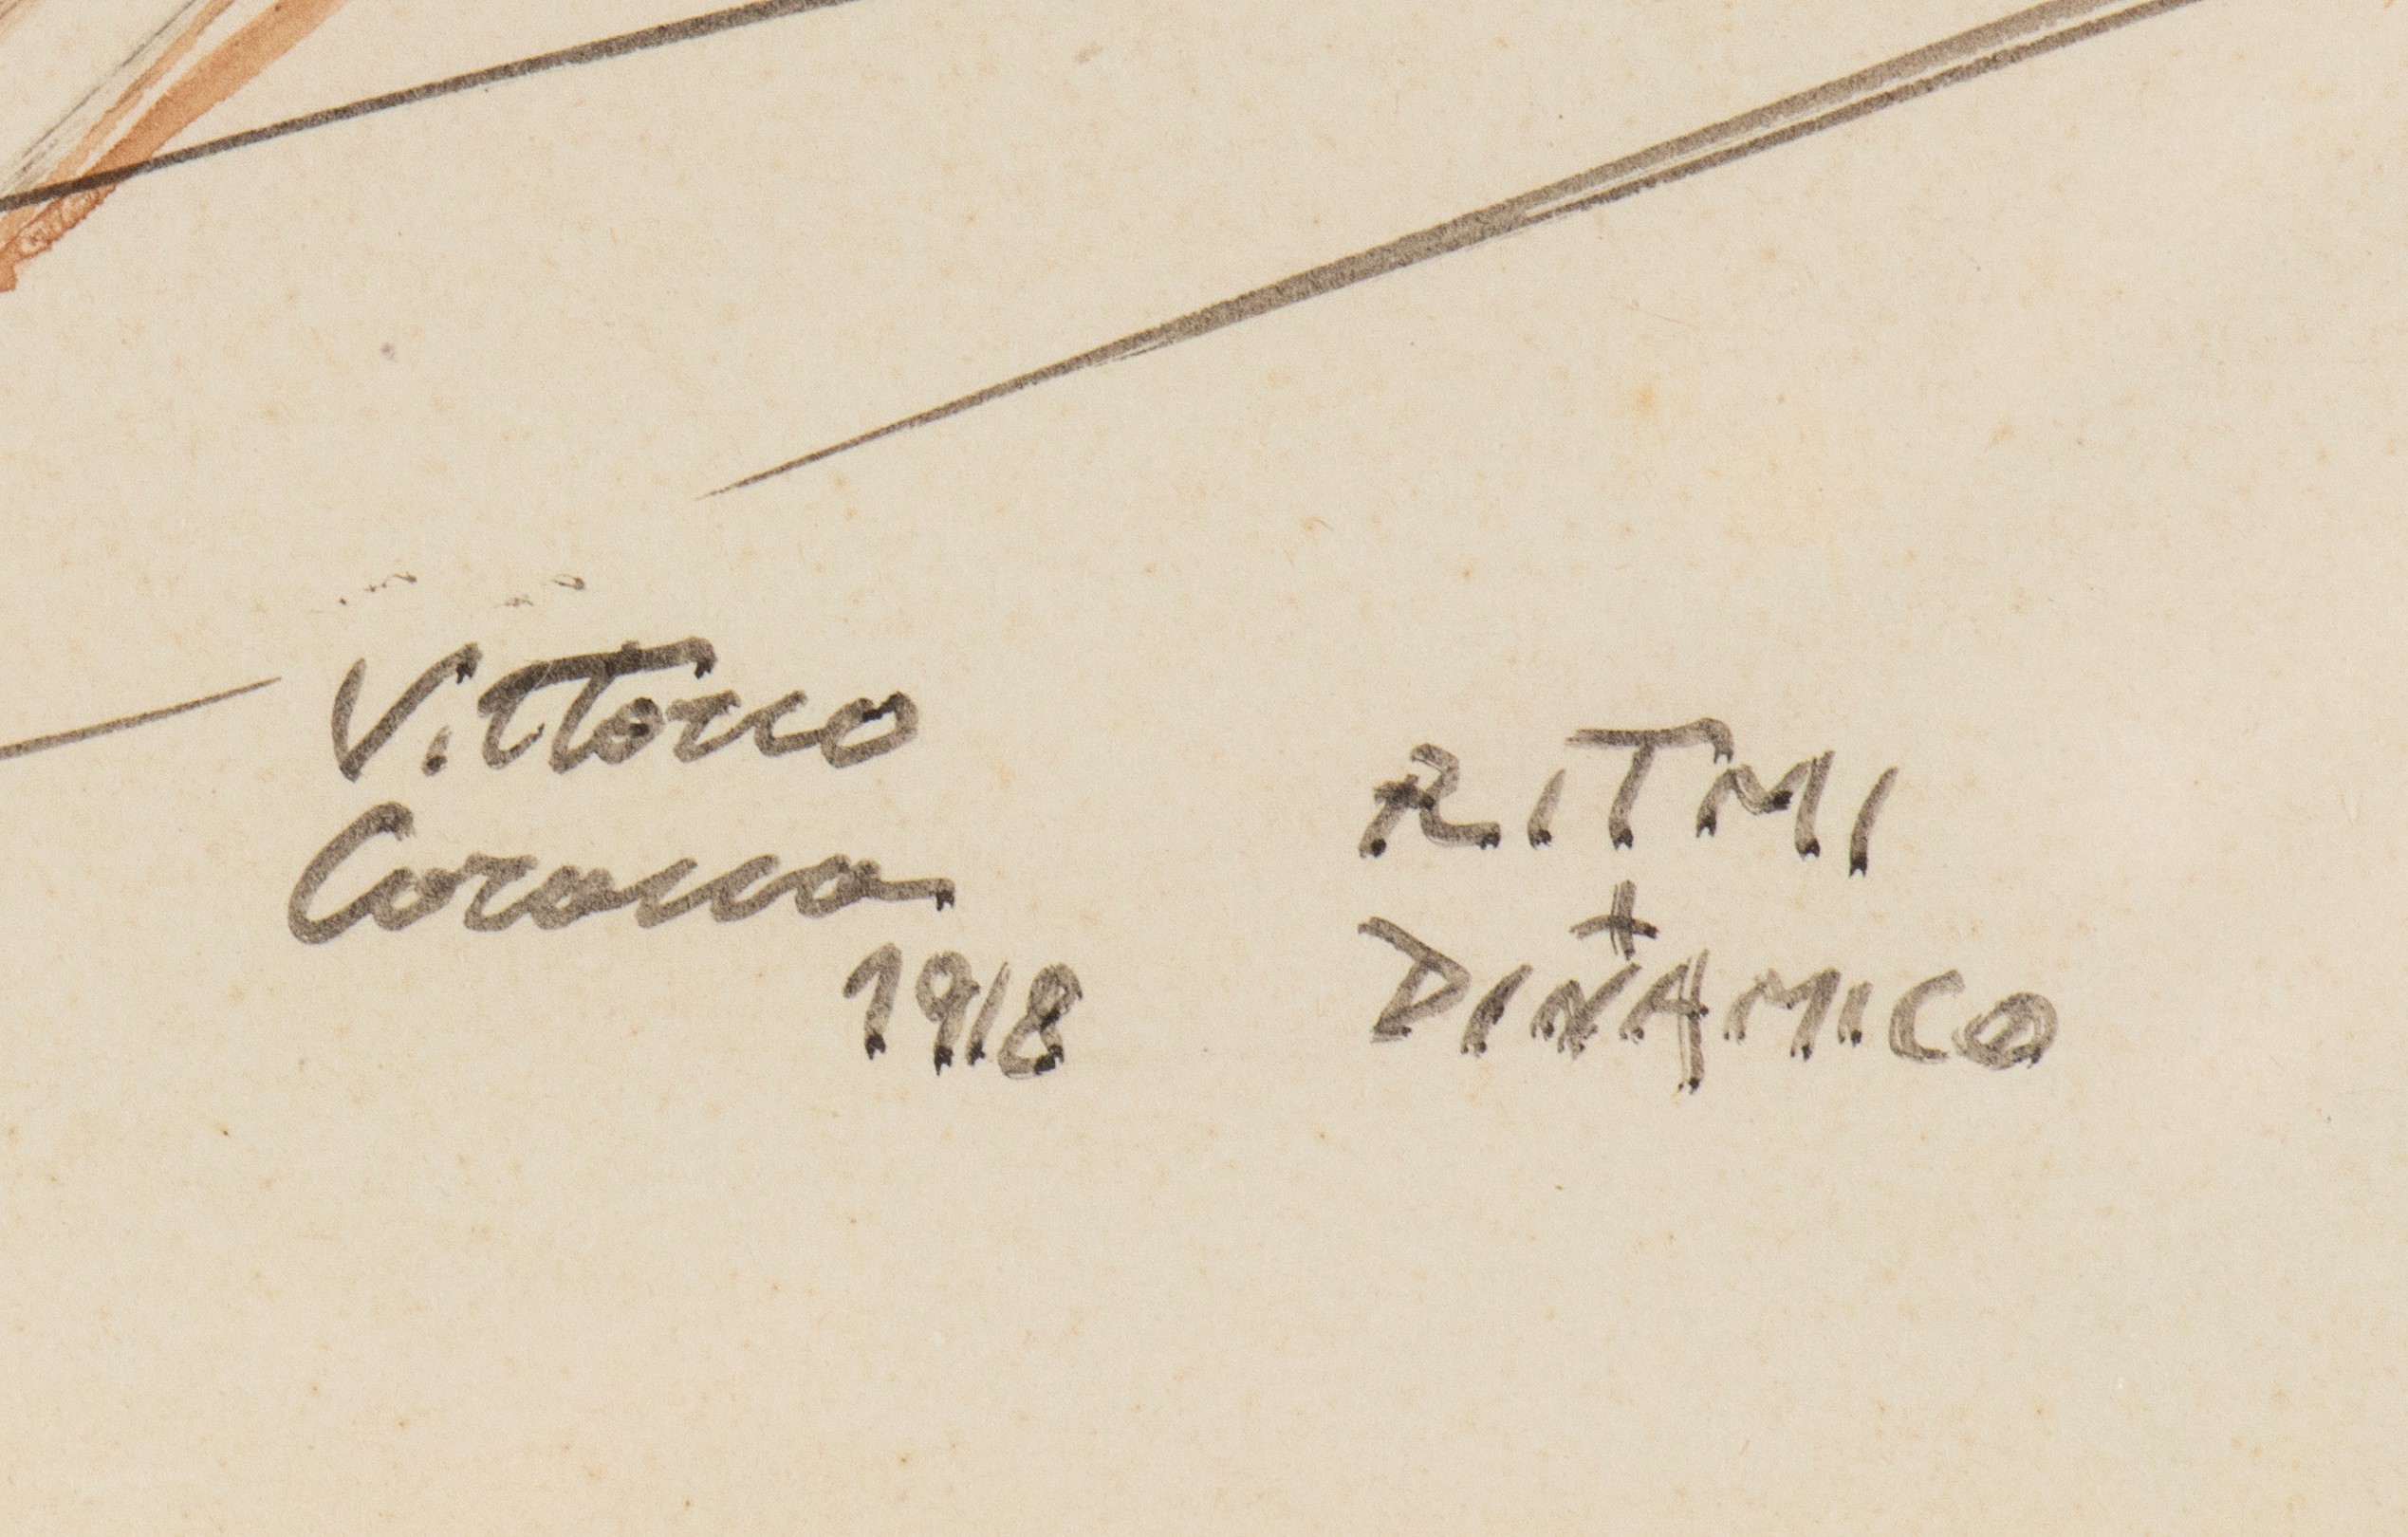 Vittorio
Corona
1918
RITMI
+
DINAMICO